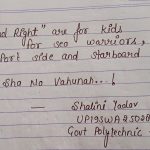 nd Right" are for kids
for sea warriors,
Port side and starboard
Sha No Varunah...!
— Shalini Yadav
UP19SWA250280
Govt Polytechnic